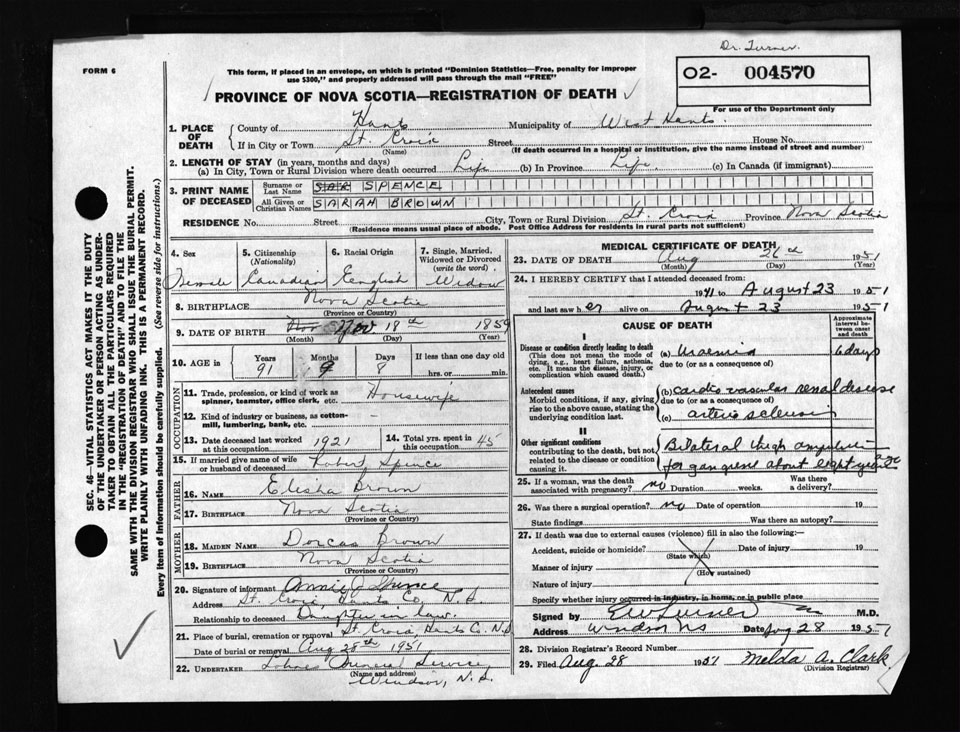 Dr. Turner.
FORM 6
This form, if placed in an envelope, on which is printed "Dominion Statistics—Free, penalty for improper
use $300," and properly addressed will pass through the mail "FREE"
O2- 004570
For use of the Department only
PROVINCE OF NOVA SCOTIA—REGISTRATION OF DEATH
1. PLACE OF DEATH { County of Hants Municipality of West Hants.
If in City or Town St. Croix Street House No.
(Name) (If death occurred in a hospital or institution, give the name instead of street and number)
2. LENGTH OF STAY (in years, months and days)
(a) In City, Town or Rural Division where death occurred Life (b) In Province Life. (c) In Canada (if immigrant)
3. PRINT NAME OF DECEASED { Surname or Last Name SAR SPENCE
All Given or Christian Names SARAH BROWN
RESIDENCE No. Street City, Town or Rural Division St. Croix Province Nova Scotia
(Residence means usual place of abode. Post Office Address for residents in rural parts not sufficient)
SEC. 46—VITAL STATISTICS ACT MAKES IT THE DUTY
OF THE UNDERTAKER OR PERSON ACTING AS UNDER-
TAKER TO OBTAIN ALL THE PARTICULARS REQUIRED
IN THE "REGISTRATION OF DEATH" AND TO FILE THE
SAME WITH THE DIVISION REGISTRAR WHO SHALL ISSUE THE BURIAL PERMIT.
WRITE PLAINLY WITH UNFADING INK. THIS IS A PERMANENT RECORD.
Every item of Information should be carefully supplied. (See reverse side for instructions.)
4. Sex 5. Citizenship (Nationality) 6. Racial Origin 7. Single, Married, Widowed or Divorced (write the word)
Female Canadian English Widow
8. BIRTHPLACE Nova Scotia
(Province or Country)
9. DATE OF BIRTH Nov 18th 1859
(Month) (Day) (Year)
10. AGE in Years Months Days If less than one day old
91 9 8 hrs. or min.
OCCUPATION
11. Trade, profession, or kind of work as
spinner, teamster, office clerk, etc. Housewife
12. Kind of industry or business, as cotton-
mill, lumbering, bank, etc.
13. Date deceased last worked at this occupation 1921 14. Total yrs. spent in this occupation 45
15. If married give name of wife or husband of deceased Robert Spence
FATHER
16. Name Elisha Brown
17. Birthplace Nova Scotia
(Province or Country)
MOTHER
18. Maiden Name Dorcas Brown
19. Birthplace Nova Scotia
(Province or Country)
20. Signature of informant Annie J Spence
Address St. Croix, Hants Co, N.S.
Relationship to deceased Daughter in law.
21. Place of burial, cremation or removal St. Croix, Hants Co. N.S.
Date of burial or removal Aug 28th 1951
22. UNDERTAKER Funeral Service,
(Name and address)
Windsor, N.S.
MEDICAL CERTIFICATE OF DEATH
23. DATE OF DEATH Aug 26th 1951
(Month) (Day) (Year)
24. I HEREBY CERTIFY that I attended deceased from:
1941 to August 23 1951
and last saw her alive on August 23 1951
CAUSE OF DEATH Approximate interval between onset and death
I
Disease or condition directly leading to death
(This does not mean the mode of dying, e.g., heart failure, asthenia, etc. It means the disease, injury, or complication which caused death.)
(a) Uraemia 6 days
due to (or as a consequence of)
Antecedent causes
Morbid conditions, if any, giving rise to the above cause, stating the underlying condition last.
(b) cardio vascular renal disease
due to (or as a consequence of)
(c) arterio sclerosis
II
Other significant conditions
contributing to the death, but not related to the disease or condition causing it.
Bilateral thigh
for gangrene about eight years
25. If a woman, was the death associated with pregnancy? no Duration weeks. Was there a delivery?
26. Was there a surgical operation? no Date of operation 19
State findings Was there an autopsy?
27. If death was due to external causes (violence) fill in also the following:—
Accident, suicide or homicide? Date of injury 19
(State which)
Manner of injury
(How sustained)
Nature of injury
Specify whether injury occurred in industry, in home, or in public place
Signed by EW Turner M.D.
Address Windsor NS Date Aug 28 1951
28. Division Registrar's Record Number
29. Filed Aug. 28 1951 Melda A. Clark
(Division Registrar)